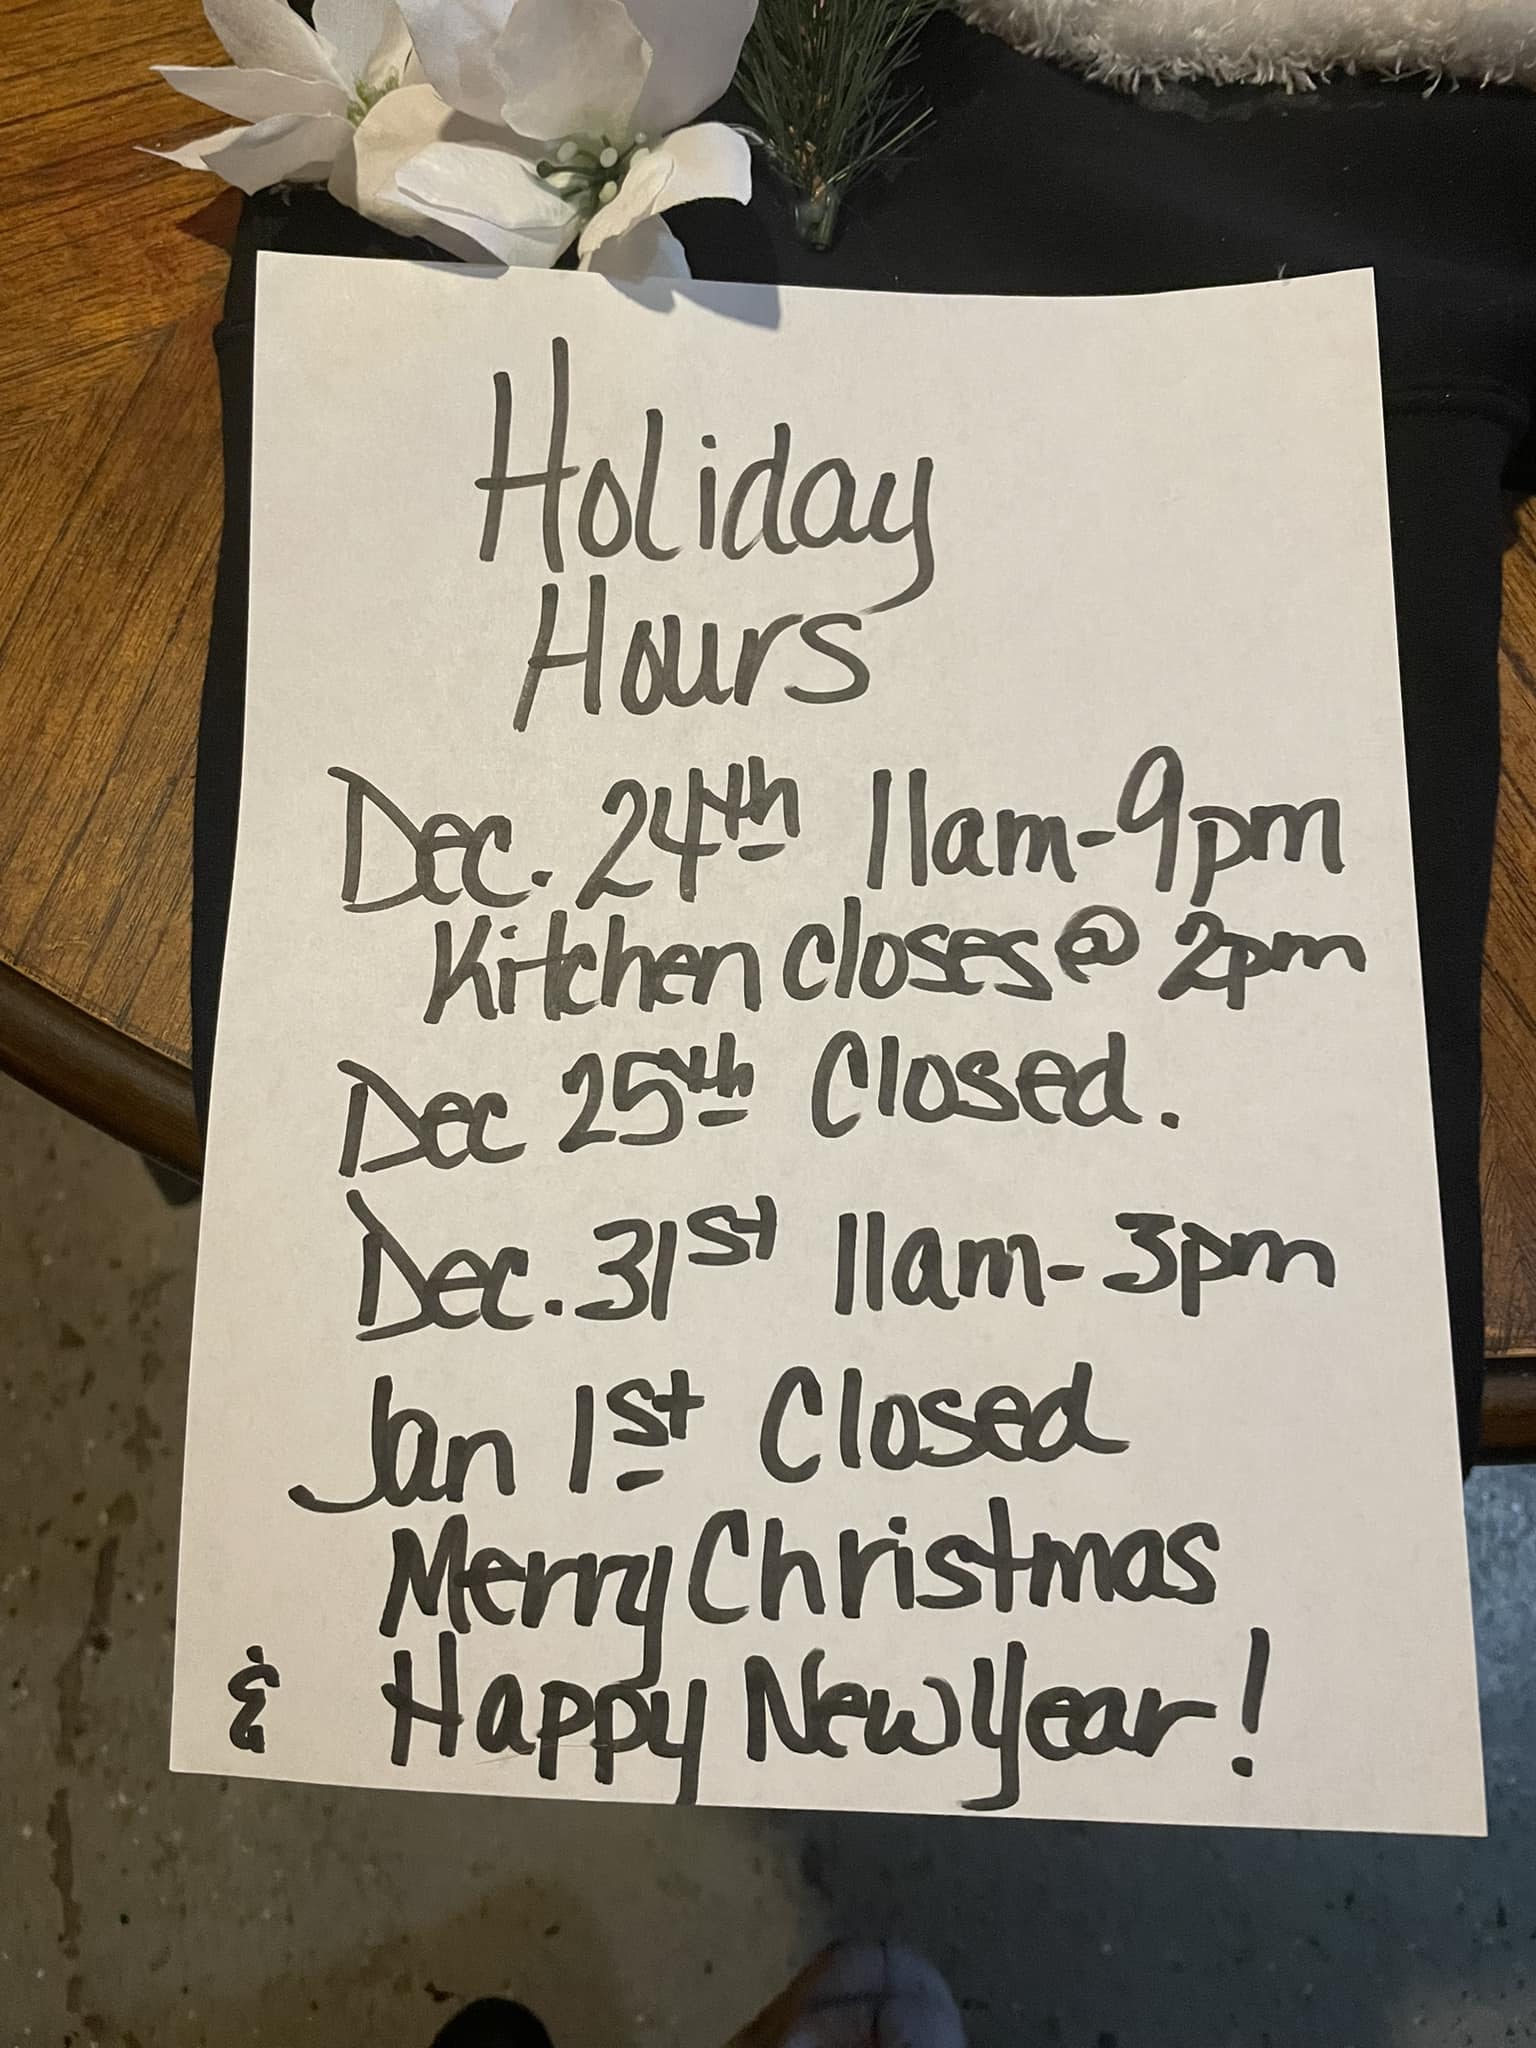 Holiday
Hours
Dec. 24th 11am-9pm
Kitchen closes @ 2pm
Dec 25th Closed.
Dec. 31st 11am-3pm
Jan 1st Closed
Merry Christmas
& Happy New Year!